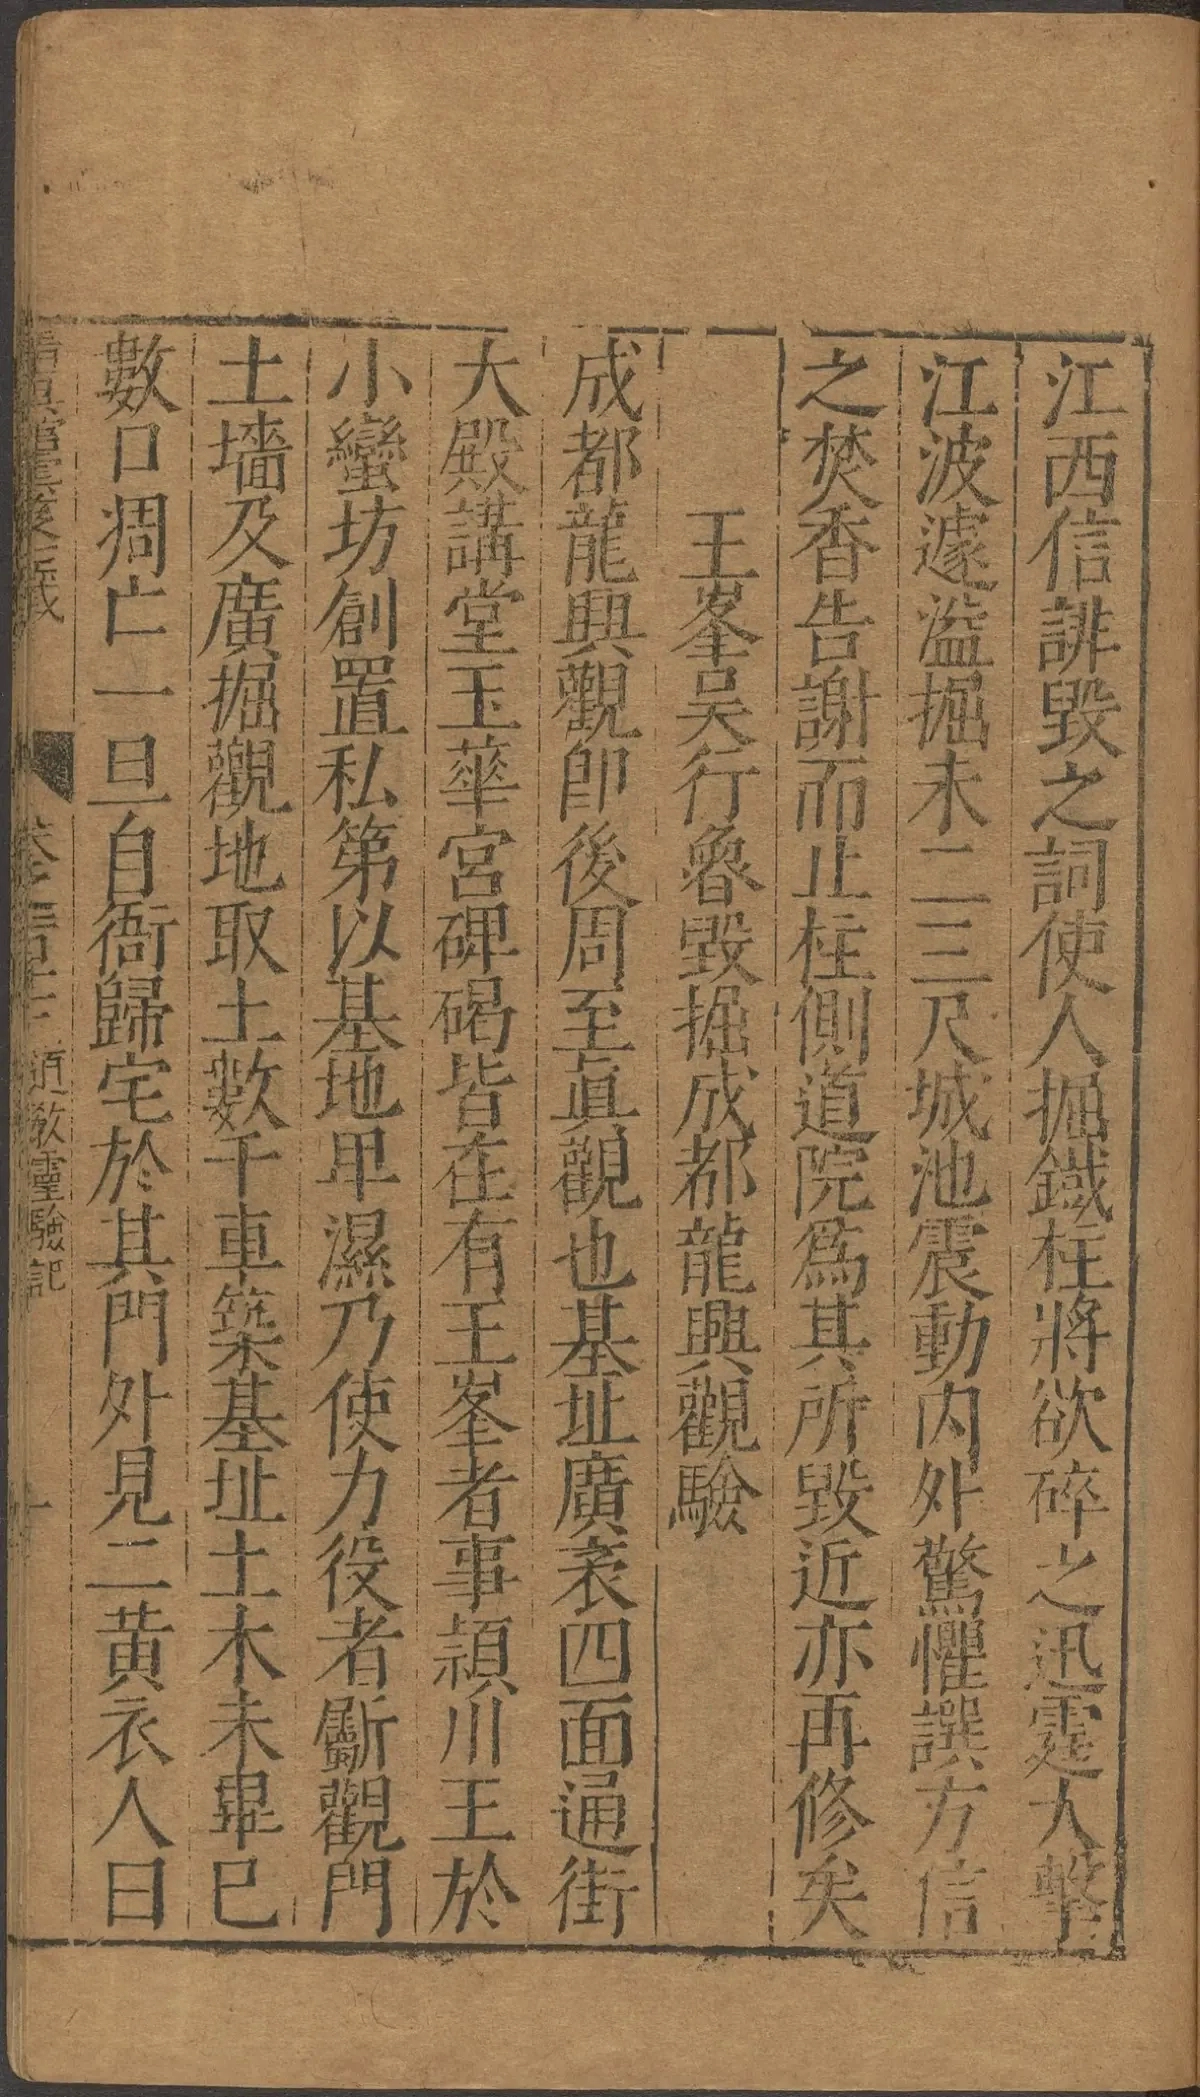 江西信誹毀之詞使人掘鐵柱將欲碎之迅霆大擊
江波遽溢掘未二三尺城池震動內外驚懼譔方信
之焚香告謝而止柱側道院爲其所毀近亦再修矣
王峯吳行魯毀掘成都龍興觀驗
成都龍興觀卽後周至眞觀也基址廣袤四面通街
大殿講堂玉華宮碑碣皆在有王峯者事頴川王於
小蠻坊創置私第以基地卑濕乃使力役者斸觀門
土墻及廣掘觀地取土數千車築基址土木未畢巳
數口凋亡一旦自衙歸宅於其門外見二黃衣人曰
道敎靈驗記